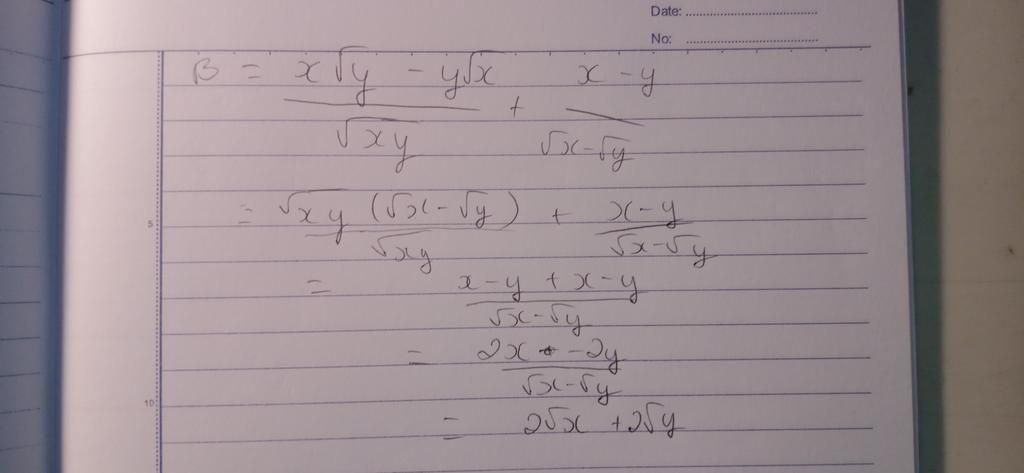 Date: ....................................
No: ....................................
B = (x√y - y√x)/√xy + (x - y)/(√x - √y)
5
= √xy (√x - √y)/√xy + (x - y)/(√x - √y)
= (x - y + x - y)/(√x - √y)
= (2x - 2y)/(√x - √y)
10
= 2√x + 2√y